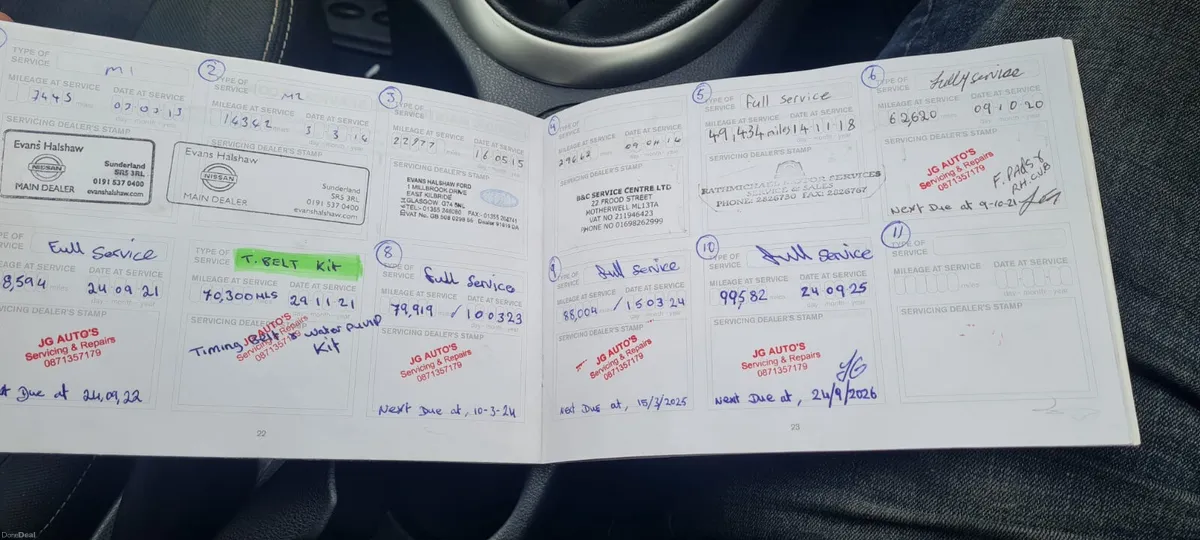 TYPE OF
SERVICE
M1
MILEAGE AT SERVICE DATE AT SERVICE
7445 miles
day month year
SERVICING DEALER'S STAMP
Evans Halshaw
NISSAN
Sunderland
SR5 3RL
0191 537 0400
evanshalshaw.com
MAIN DEALER
2
TYPE OF
SERVICE
M2
MILEAGE AT SERVICE DATE AT SERVICE
16342 3 3 14
SERVICING DEALER'S STAMP
Evans Halshaw
NISSAN
Sunderland
SR5 3RL
0191 537 0400
evanshalshaw.com
MAIN DEALER
3
TYPE OF
SERVICE
MILEAGE AT SERVICE DATE AT SERVICE
22977 16 05 15
SERVICING DEALER'S STAMP
EVANS HALSHAW FORD
1 MILLBROOK DRIVE
EAST KILBRIDE
GLASGOW
4
TYPE OF
SERVICE
MILEAGE AT SERVICE DATE AT SERVICE
SERVICING DEALER'S STAMP
D&C SERVICE CENTRE LTD
22 FROOD STREET
MOTHERWELL ML13TA
VAT NO 211946423
PHONE NO 01698262999
5
TYPE OF
SERVICE
Full Service
MILEAGE AT SERVICE DATE AT SERVICE
49,434 miles 14 11 18
SERVICING DEALER'S STAMP
RATHMICHAEL MOTOR SERVICES
SERVICE & SALES
PHONE: 2826750 FAX: 2826767
6
TYPE OF
SERVICE
Fully service
MILEAGE AT SERVICE DATE AT SERVICE
62,620 09 10 20
SERVICING DEALER'S STAMP
JG AUTO'S
Servicing & Repairs
0871357179
F. PADS &
Next Due at 9-10-21
Full Service
MILEAGE AT SERVICE DATE AT SERVICE
8,594 24 09 21
SERVICING DEALER'S STAMP
JG AUTO'S
Servicing & Repairs
0871357179
Due at 24,09,22
TYPE OF
SERVICE
T. BELT Kit
MILEAGE AT SERVICE DATE AT SERVICE
70,300 MLS 29 11 21
SERVICING DEALER'S STAMP
JG AUTO'S
Servicing & Repairs
0871357179
Timing Belt & Water pump
Kit
8
TYPE OF
SERVICE
Full Service
MILEAGE AT SERVICE DATE AT SERVICE
79,919 / 10 03 23
SERVICING DEALER'S STAMP
JG AUTO'S
Servicing & Repairs
0871357179
Next Due at, 10-3-24
9
TYPE OF
SERVICE
Full Service
MILEAGE AT SERVICE DATE AT SERVICE
88,004 / 15 03 24
SERVICING DEALER'S STAMP
JG AUTO'S
Servicing & Repairs
0871357179
Next Due at, 15/3/2025
10
TYPE OF
SERVICE
Full Service
MILEAGE AT SERVICE DATE AT SERVICE
99582 24 09 25
SERVICING DEALER'S STAMP
JG AUTO'S
Servicing & Repairs
0871357179
JG
Next Due at, 24/9/2026
11
TYPE OF
SERVICE
MILEAGE AT SERVICE DATE AT SERVICE
miles day month year
SERVICING DEALER'S STAMP
22
23
DoneDeal